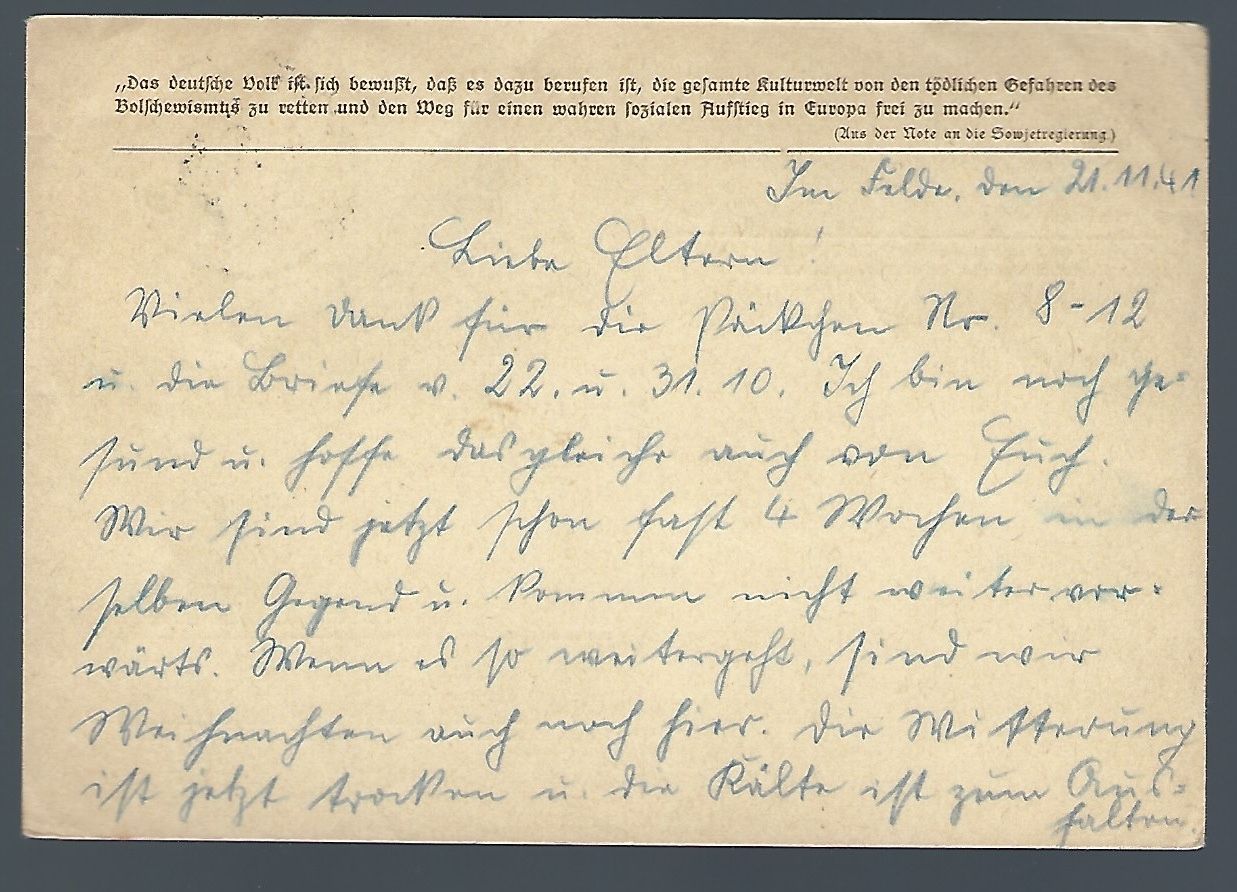 „Das deutsche Volk ist sich bewußt, daß es dazu berufen ist, die gesamte Kulturwelt von den tödlichen Gefahren des
Bolschewismus zu retten und den Weg für einen wahren sozialen Aufstieg in Europa frei zu machen.“
(Aus der Note an die Sowjetregierung)
Im Felde, den 21.11.41
Liebe Eltern!
Vielen Dank für die Päckchen Nr. 8-12
u. die Briefe v. 22. u. 31. 10. Ich bin noch ge=
sund u. hoffe das gleiche auch von Euch.
Wir sind jetzt schon fast 4 Wochen in der
selben Gegend u. kommen nicht weiter vor=
wärts. Wenn es so weitergeht, sind wir
Weihnachten auch noch hier. Die Witterung
ist jetzt trocken u. die Kälte ist zum Aus=
halten.